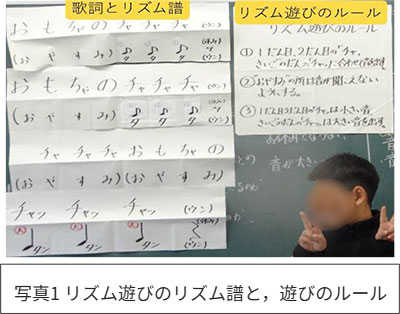 歌詞とリズム譜
おもちゃの チャ チャ チャ (ウン)
(おやすみ) ♪ ♪ ♪ (休み)
タ タ タ (ウン)
おもちゃの チャ チャ チャ (ウン)
(おやすみ) ♪ ♪ ♪
タ タ タ (ウン)
チャ チャ チャ おもちゃの
(おやすみ)(おやすみ)
チャッ チャッ チャッ (ウン)
タン タン タン (ウン)
リズム遊びのルール
リズム遊びのルール
① 1だん目、2だん目の"チャ、
②おやすみの所は音が聞こえない
ようにする。
③ 1だん目2だん目の"チャ"は小さい音
さいごのだんの"チャッ"は大きい音を出す。
音が大き
写真1 リズム遊びのリズム譜と，遊びのルール